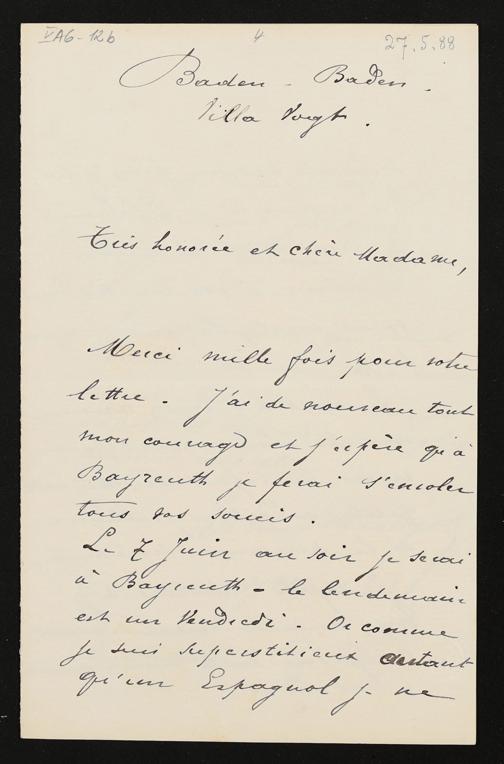 VA6-12b 4 27.5.88
Baden-Baden.
Villa Voigt.
Très honorée et chère Madame,
Merci mille fois pour votre
lettre. J'ai de nouveau tout
mon courage et j'espère qu'à
Bayreuth je ferai s'envoler
tous vos soucis.
Le 7 Juin au soir je serai
à Bayreuth - le lendemain
est un Vendredi. Or comme
je suis superstitieux autant
qu'un Espagnol je ne